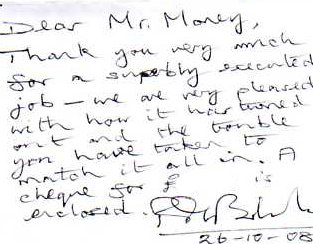 Dear Mr. Money,
Thank you very much
for a superbly executed
job – we are very pleased
with how it has turned
out and the trouble
you have taken to
match it all in. A
cheque for £ is
enclosed.
26-10-08